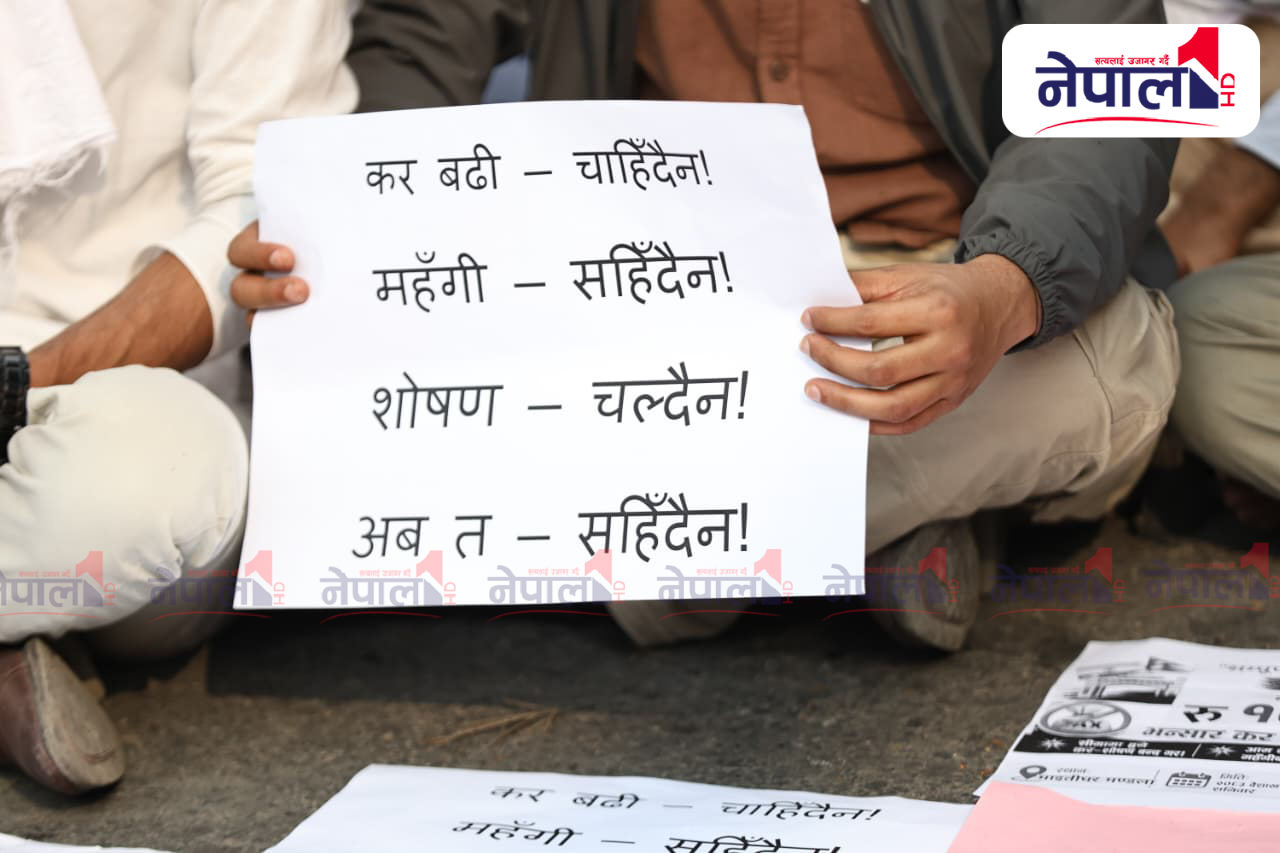 सत्यलाई उजागर गर्दै
नेपाल 1 HD
कर बढी – चाहिँदैन!
महँगी – सहिँदैन!
शोषण – चल्दैन!
अब त – सहिँदैन!
नेपाल 1 HD
नेपाल 1 HD
नेपाल 1 HD
नेपाल 1 HD
नेपाल 1 HD
नेपाल 1 HD
नेपाल 1 HD
नेपाल 1
रु
भन्सार कर
कर-शोषण बन्द गर!
स्थान:
माइतीघर मण्डला
मिति:
शनिवार
कर बढी – चाहिँदैन!
महँगी – सहिँदैन!